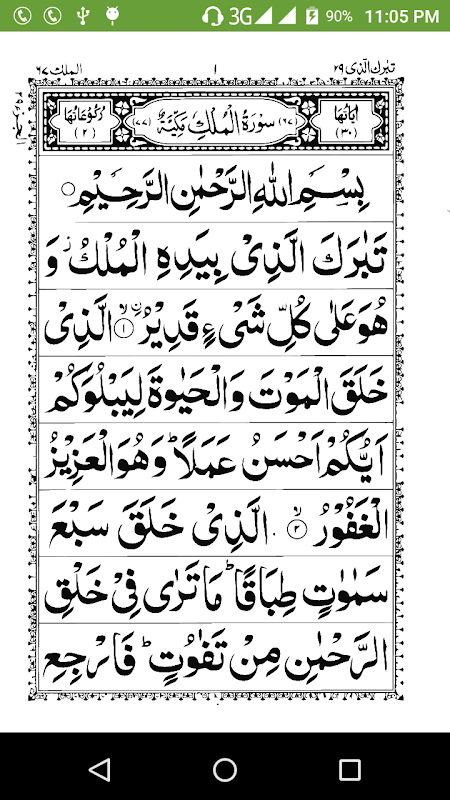 3G 90% 11:05 PM
تبٰرك الّذى ٢٩ ١ الملك ٦٧
اٰيَاتُهَا (٣٠) (٦٧) سُوْرَةُ الْمُلْكِ مَكِّيَّةٌ (٧٧) رُكُوْعَاتُهَا (٢)
بِسْمِ اللهِ الرَّحْمٰنِ الرَّحِيْمِ
تَبٰرَكَ الَّذِىْ بِيَدِهِ الْمُلْكُ ز وَ
هُوَ عَلٰى كُلِّ شَىْءٍ قَدِيْرُ ۨ ۙ ﴿١﴾ الَّذِىْ
خَلَقَ الْمَوْتَ وَالْحَيٰوةَ لِيَبْلُوَكُمْ
اَيُّكُمْ اَحْسَنُ عَمَلًا ؕ وَهُوَ الْعَزِيْزُ
الْغَفُوْرُ ۙ ﴿٢﴾ الَّذِىْ خَلَقَ سَبْعَ
سَمٰوٰتٍ طِبَاقًا ؕ مَا تَرٰى فِىْ خَلْقِ
الرَّحْمٰنِ مِنْ تَفٰوُتٍ ؕ فَارْجِعِ